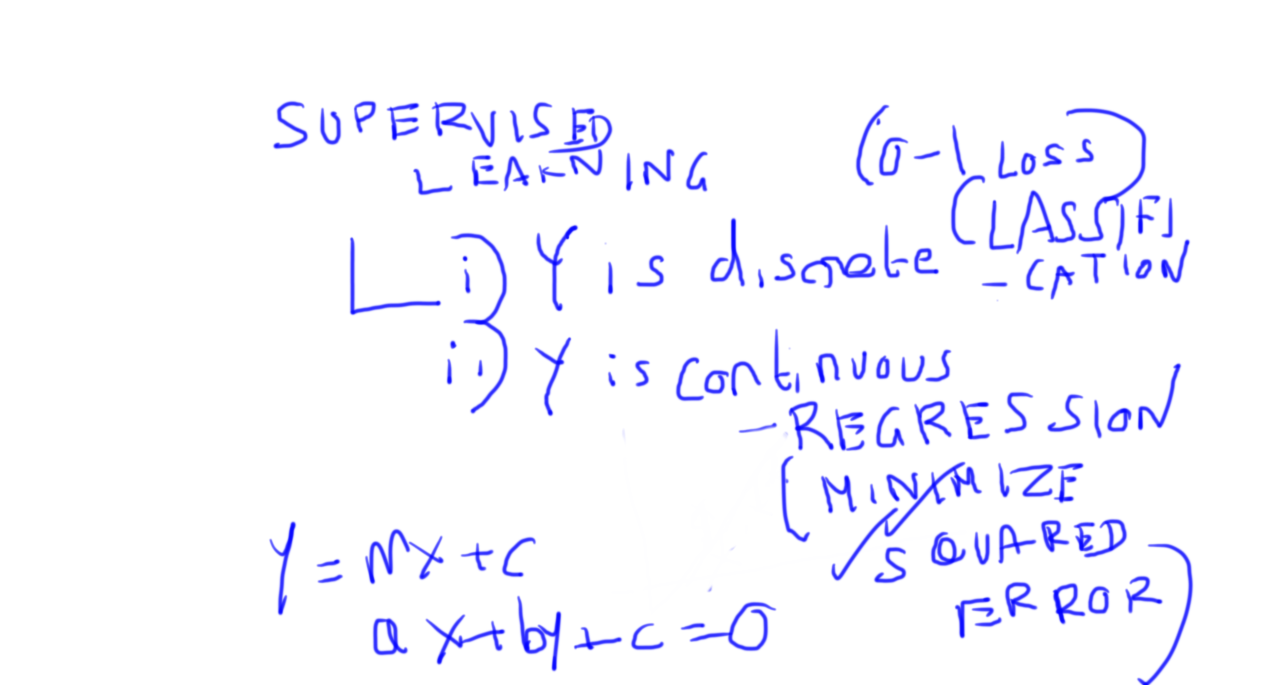 SUPERVISED
LEARNING
(0-1 LOSS)
i) Y is discrete CLASSIFI
-CATION
ii) Y is continuous
- REGRESSION
(MINIMIZE
SQUARED
ERROR)
Y = mx + c
ax + by + c = 0